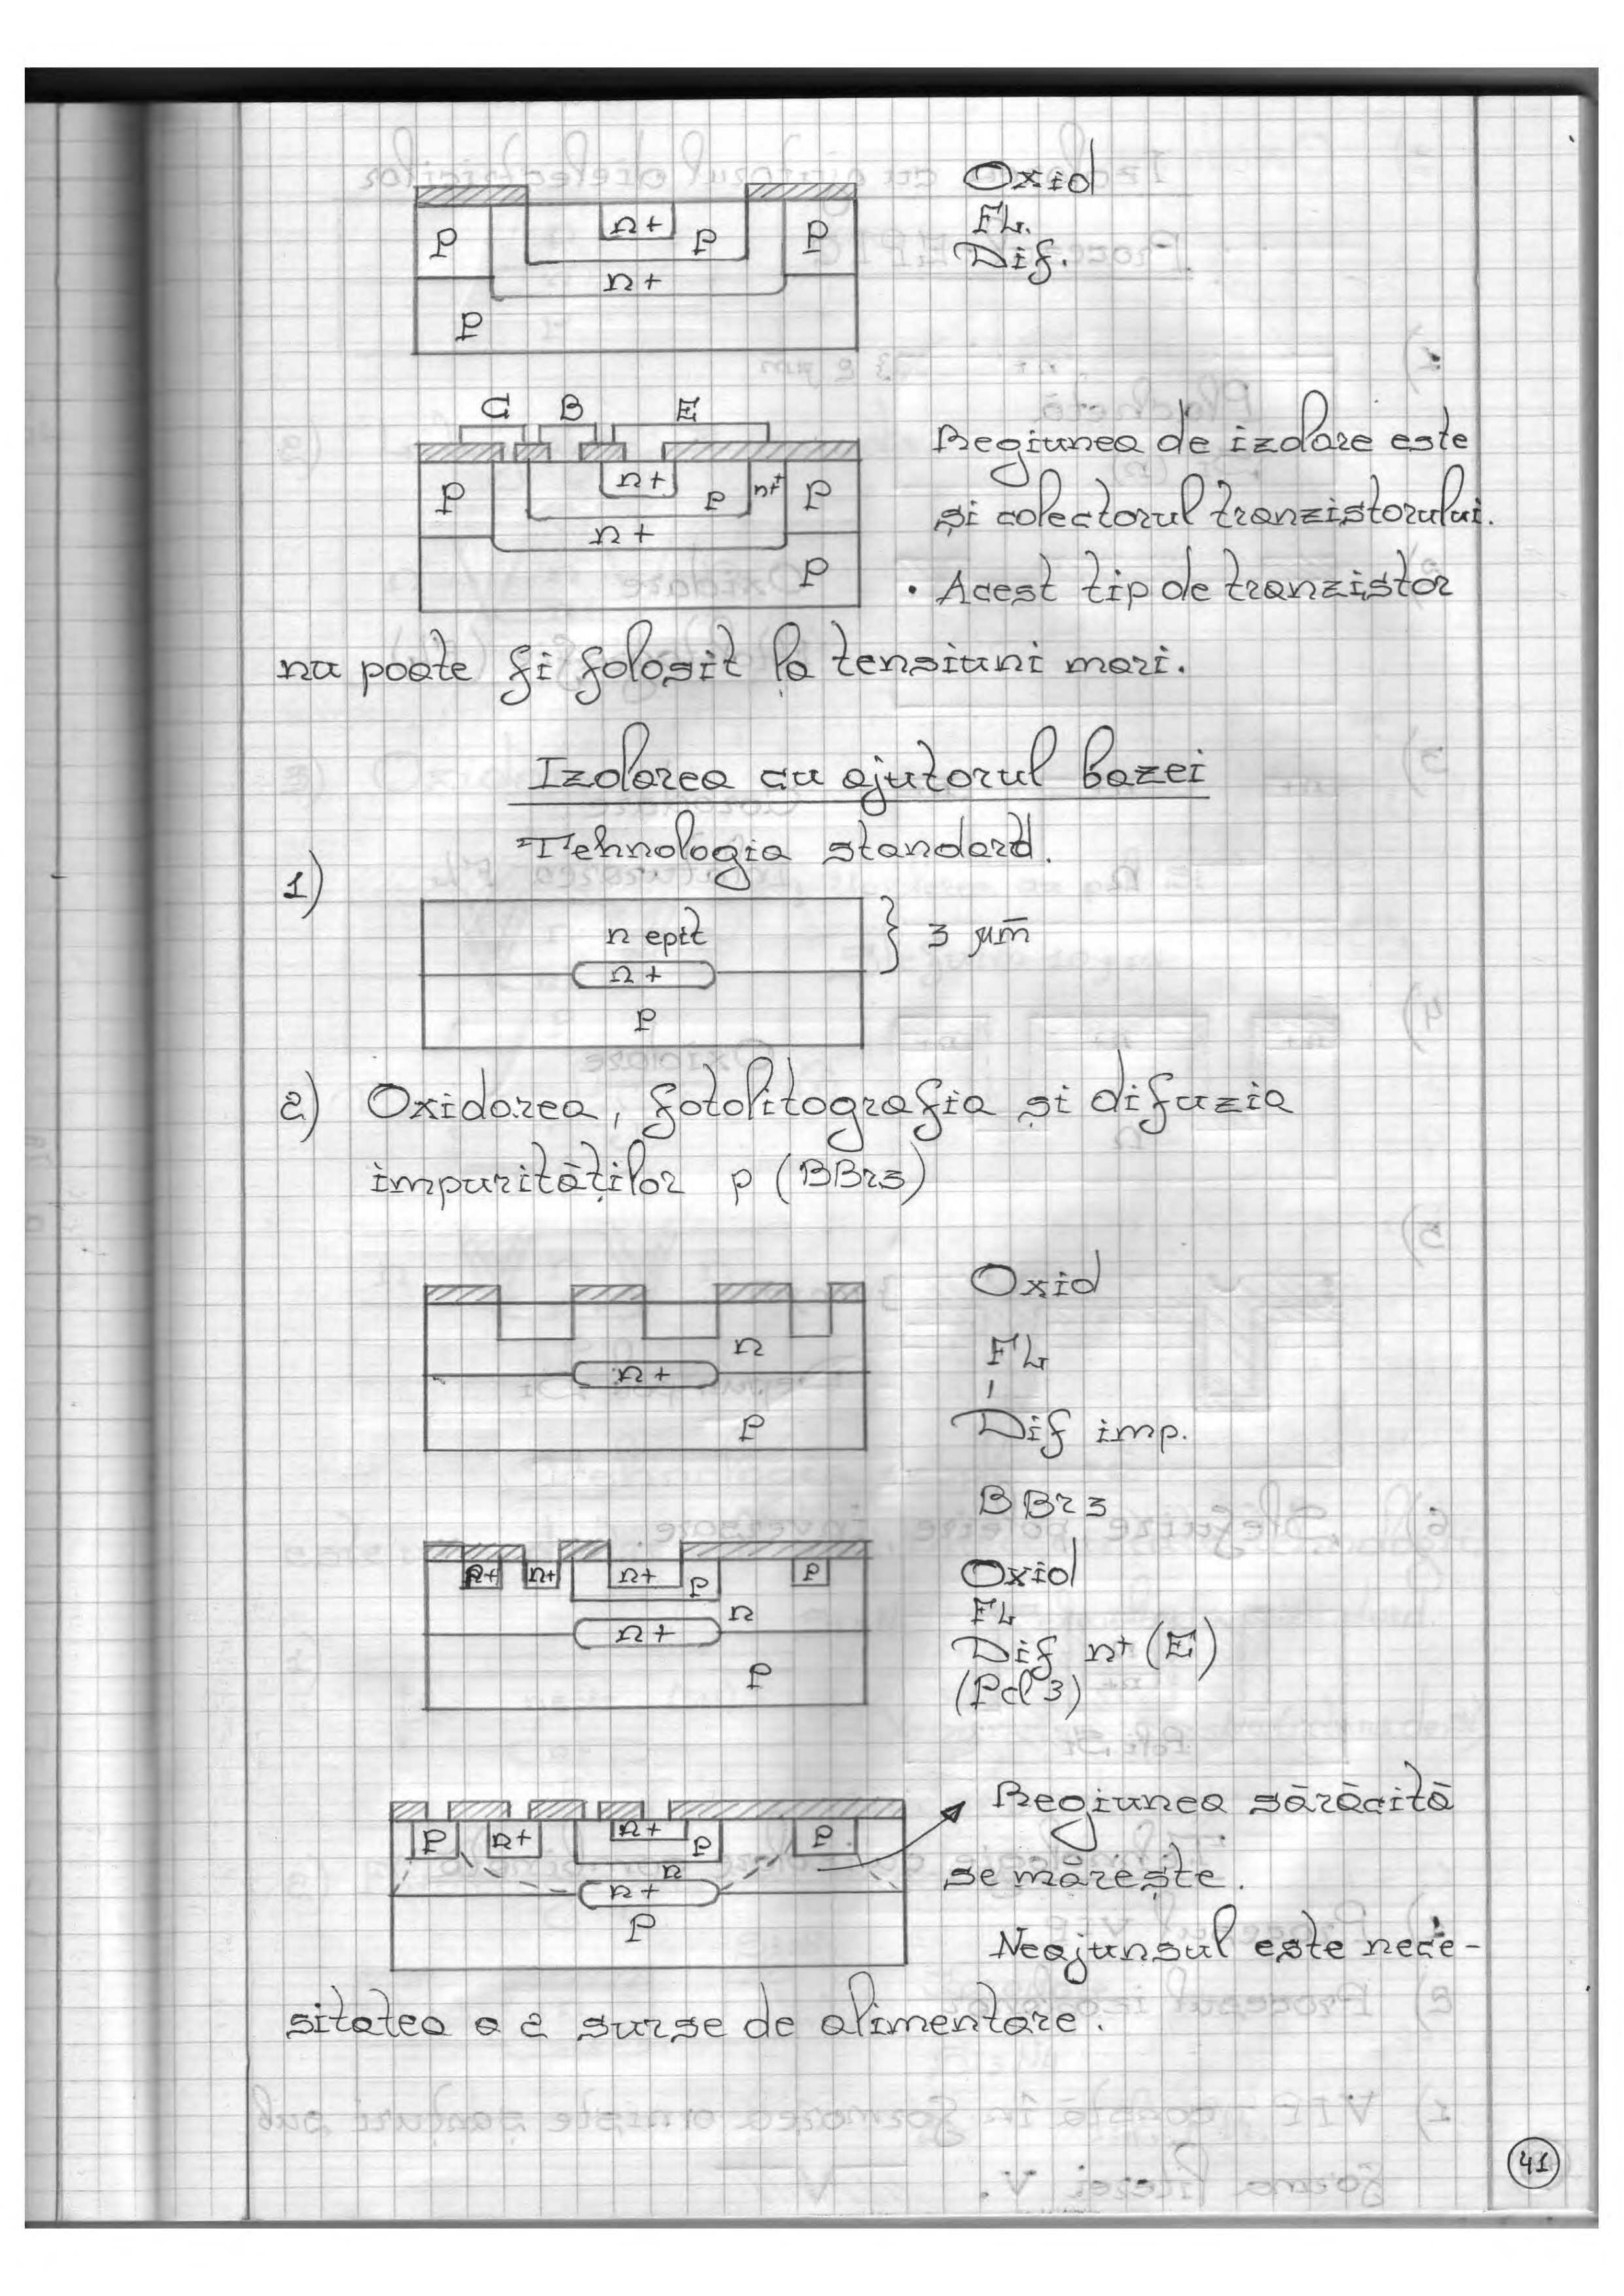 Oxid
FL.
Dif.
n+
P
p
P
n+
P
C B E
Regiunea de izolare este
n+
P
p
n+
P
și colectorul tranzistorului.
n+
P
• Acest tip de tranzistor
nu poate fi folosit la tensiuni mari.
Izolarea cu ajutorul bazei
Tehnologia standard.
1)
n epit
3 μm
n+
P
2) Oxidarea, fotolitografia și difuzia
impurităților p (BBr3)
Oxid
n
FL
n+
Dif imp.
P
BBr3
Oxid
n+
n+
p
p
FL
n
n+
Dif n+ (E)
P
(Pcl3)
Regiunea sărăcită
P
n+
n+
p
P
n
se mărește.
n+
P
Neajunsul este nece-
sitatea a 2 surse de alimentare.
41